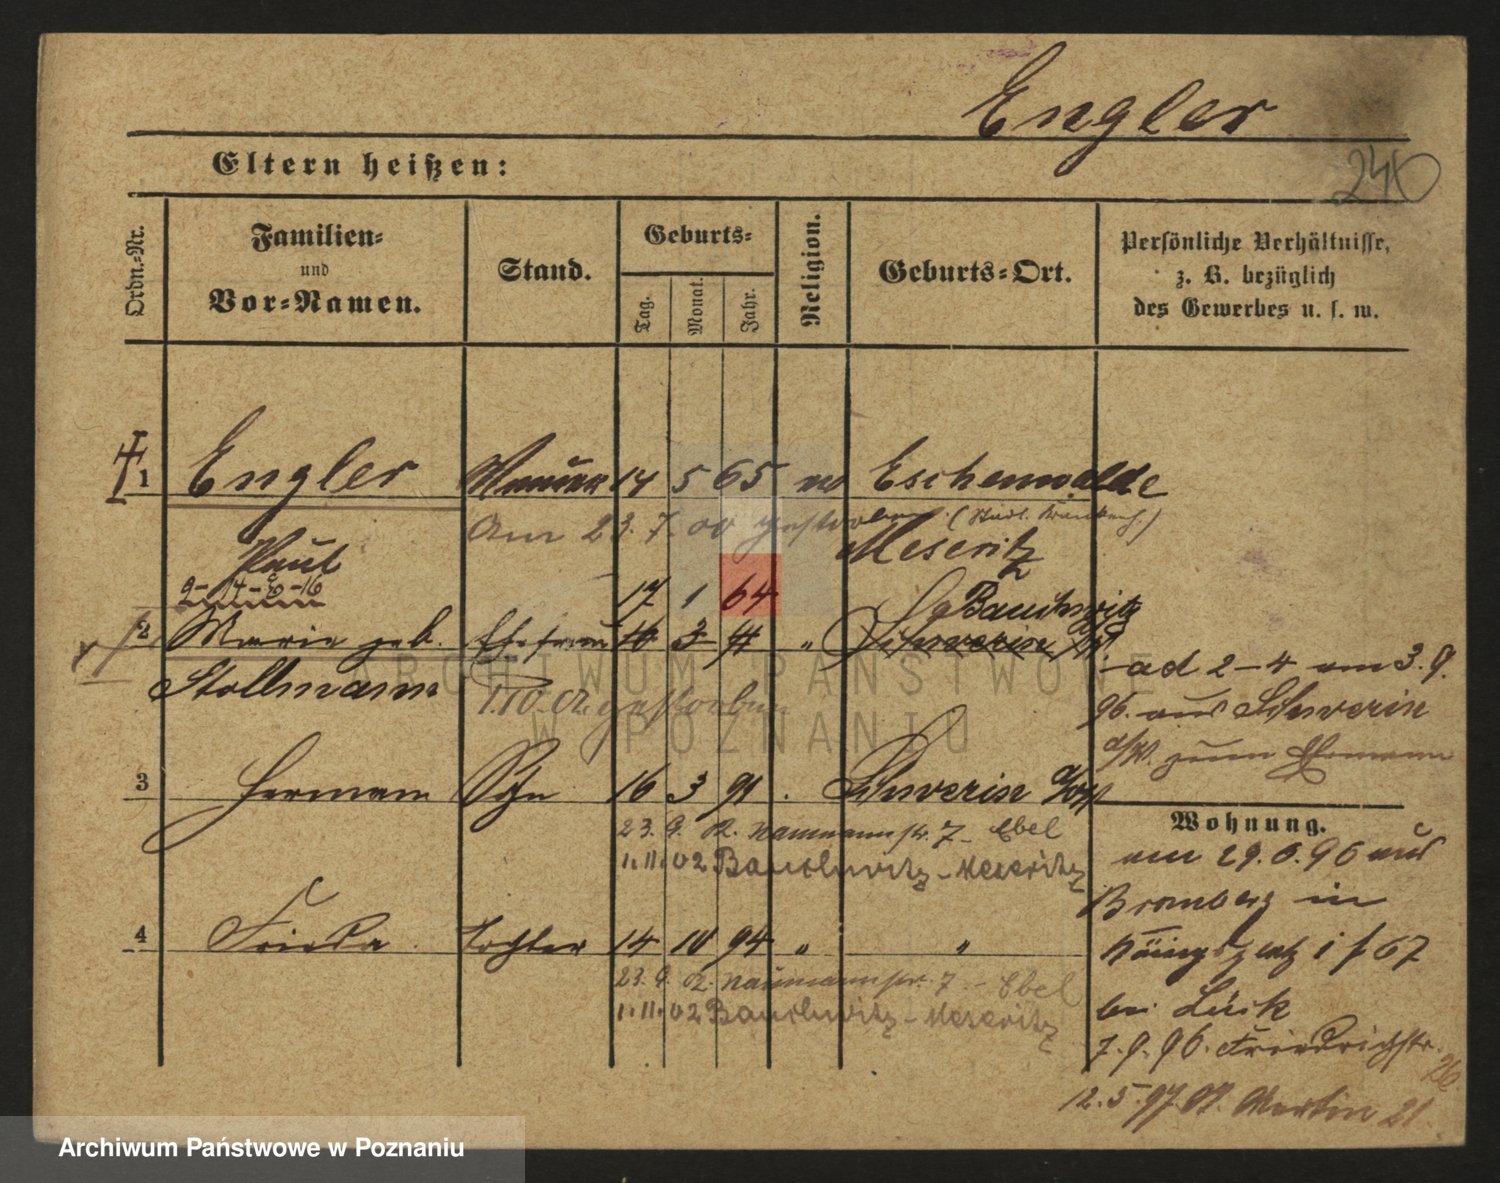 Engler
240
Eltern heißen:
Ordn.-Nr.
Familien-
und
Vor-Namen.
Stand.
Geburts-
Tag.
Monat.
Jahr.
Religion.
Geburts-Ort.
Persönliche Verhältnisse,
z. B. bezüglich
des Gewerbes u. s. w.
1 Engler Maurer 14 5 65 Eschenwalde
Am 23. 7. 00 gestorben.
Meseritz
Paul
9-14-E-16
17 1 64 Bauchwitz
2 Marie geb. Ehefrau 16 3 " Schwerin
Stollmann
1.10.01 gestorben
ad 2-4 am 3. 9.
96. aus Schwerin
a/W. zum Ehemann
3 Hermann Sohn 16 3 91 Schwerin a/W
23. 9. R. Naumannstr. 7 - Ebel
1. 11. 02 Bauchwitz - Meseritz
Wohnung.
am 29. 6. 96 aus
Bromberg in
Königsplatz
bei Lück
4 Frieda Tochter 14 10 94 " "
23. 9. R. Naumannstr. 7 - Ebel
1. 11. 02 Bauchwitz - Meseritz
7. 9. 96. Friedrichstr. 26.
12. 5. 97. St. Martin 21.
ARCHIWUM PAŃSTWOWE
W POZNANIU
Archiwum Państwowe w Poznaniu